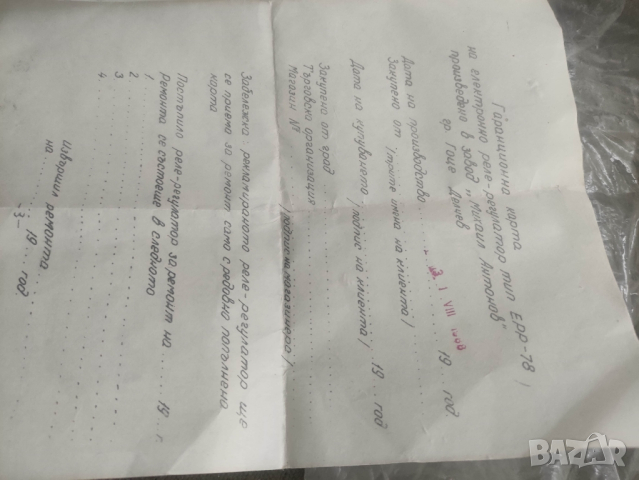 Гаранционна карта
на електронно реле-регулатор тип ЕРР-78
произведено в завод "Михаил Антонов"
гр Гоце Делчев
Дата на производство 19 год
VIII
Закупено от /трите имена на клиента/
Дата на купуването /подпис на клиента/ 19 год
Закупено от град
Търговска организация
Магазин № /подпис на магазинера/
Забележка: рекламираното реле-регулатор ще
се приема за ремонт само с редовно попълнена
карта
Постъпило реле-регулатор за ремонт на 19 г.
Ремонта се състоеше в следното
1
2
3
4
Извършил ремонта
на 19 год
-3-
BAZAR
bazar.bg